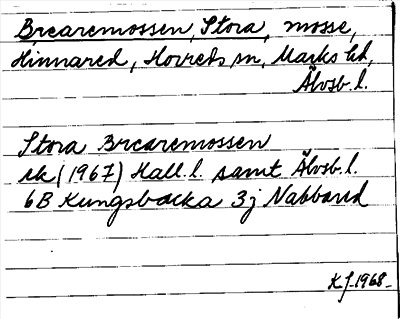 Brearemossen, Stora, mosse,
Hinnared, Horreds sn, Marks hd,
Älvsb. l.
Stora Brearemossen
ek (1967) Hall. l. samt Älvsb. l.
6B Kungsbacka 3j Nabbared
KJ-1968-